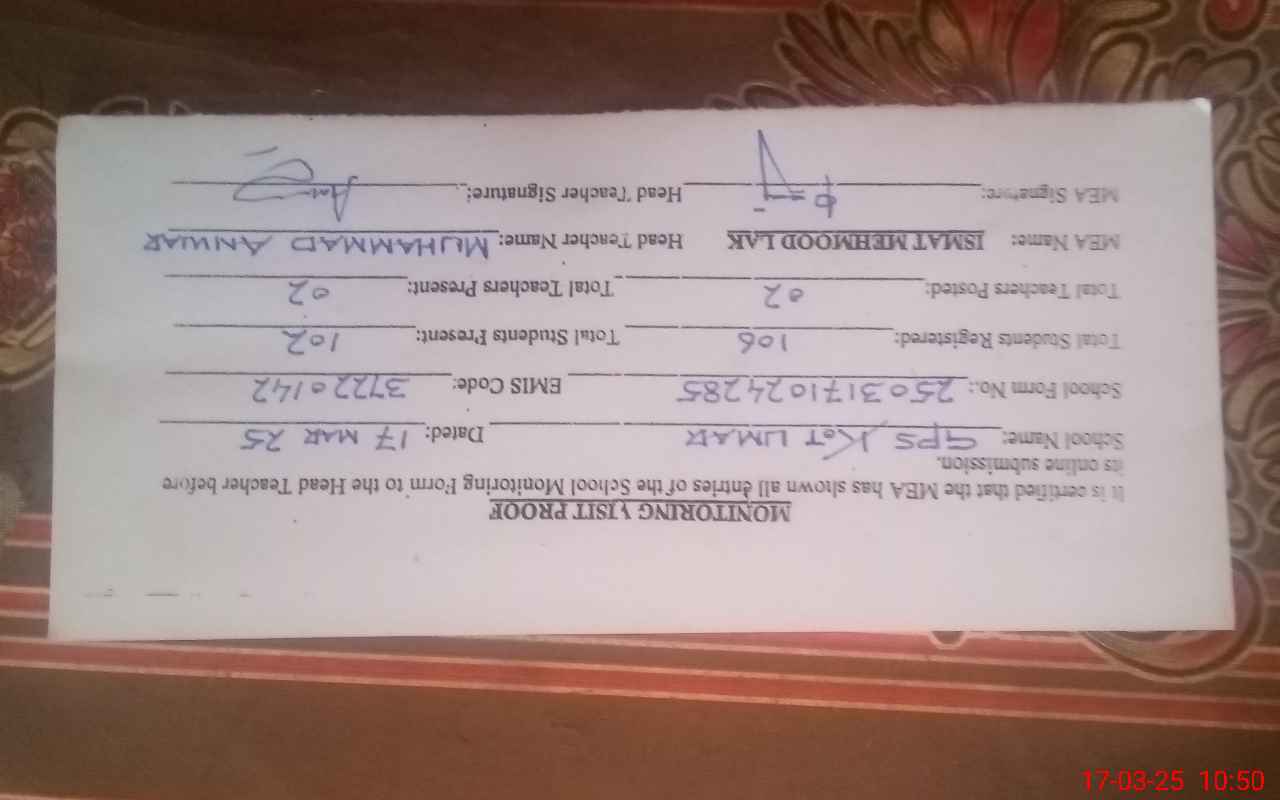 MONITORING VISIT PROOF
It is certified that the MEA has shown all entries of the School Monitoring Form to the Head Teacher before
its online submission.
School Name: GPS KOT UMAR Dated: 17 MAR 25
School Form No.: 2503171024285 EMIS Code: 37220142
Total Students Registered: 106 Total Students Present: 102
Total Teachers Posted: 02 Total Teachers Present: 02
MEA Name: ISMAT MEHMOOD LAK Head Teacher Name: MUHAMMAD ANWAR
MEA Signature: Head Teacher Signature:
17-03-25 10:50